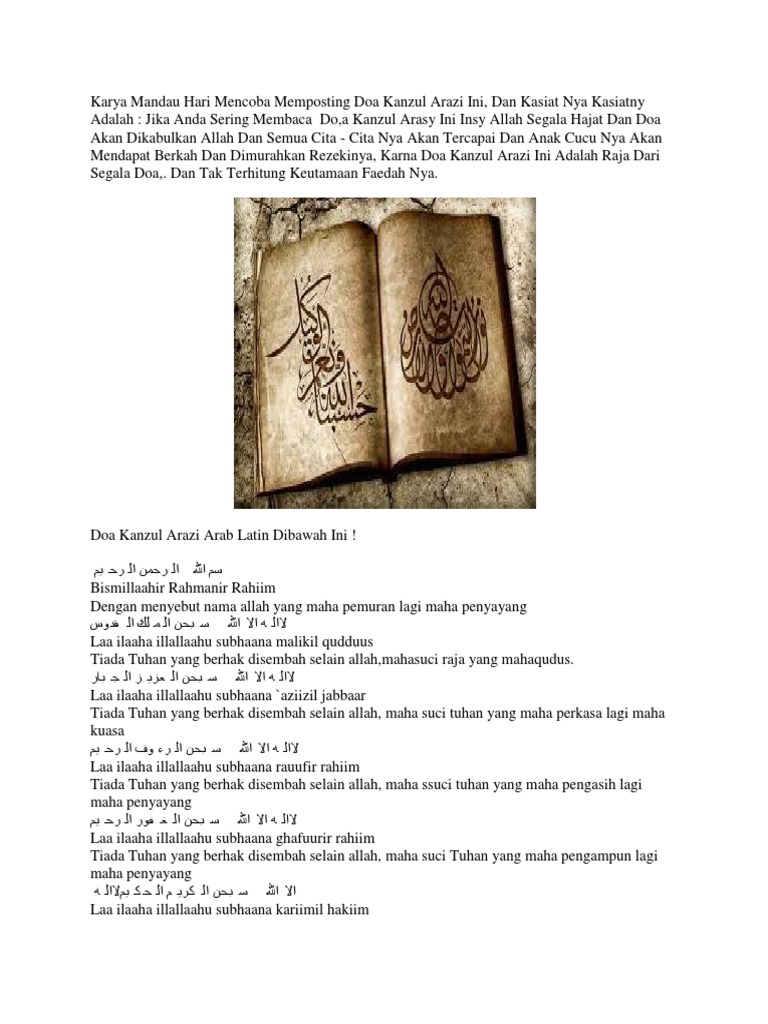 Karya Mandau Hari Mencoba Memposting Doa Kanzul Arazi Ini, Dan Kasiat Nya Kasiatny
Adalah : Jika Anda Sering Membaca Do,a Kanzul Arasy Ini Insy Allah Segala Hajat Dan Doa
Akan Dikabulkan Allah Dan Semua Cita - Cita Nya Akan Tercapai Dan Anak Cucu Nya Akan
Mendapat Berkah Dan Dimurahkan Rezekinya, Karna Doa Kanzul Arazi Ini Adalah Raja Dari
Segala Doa,. Dan Tak Terhitung Keutamaan Faedah Nya.
حسبنا الله ونعم الوكيل
Doa Kanzul Arazi Arab Latin Dibawah Ini !
سم الله الـ رحمن الـ رحـ يم
Bismillaahir Rahmanir Rahiim
Dengan menyebut nama allah yang maha pemuran lagi maha penyayang
لاالـ ـه الا الله سـ بحن الـ مـ لك الـ ـقدوس
Laa ilaaha illallaahu subhaana malikil qudduus
Tiada Tuhan yang berhak disembah selain allah,mahasuci raja yang mahaqudus.
لاالـ ـه الا الله سـ بحن الـ عزيـ ز الـ جـ بار
Laa ilaaha illallaahu subhaana `aziizil jabbaar
Tiada Tuhan yang berhak disembah selain allah, maha suci tuhan yang maha perkasa lagi maha
kuasa
لاالـ ـه الا الله سـ بحن الـ رء وف الـ رحـ يم
Laa ilaaha illallaahu subhaana rauufir rahiim
Tiada Tuhan yang berhak disembah selain allah, maha ssuci tuhan yang maha pengasih lagi
maha penyayang
لاالـ ـه الا الله سـ بحن الـ غـ ـفور الـ رحـ يم
Laa ilaaha illallaahu subhaana ghafuurir rahiim
Tiada Tuhan yang berhak disembah selain allah, maha suci Tuhan yang maha pengampun lagi
maha penyayang
الا الله سـ بحن الـ كريـ م الـ حـ كـ يملاالـ ـه
Laa ilaaha illallaahu subhaana kariimil hakiim